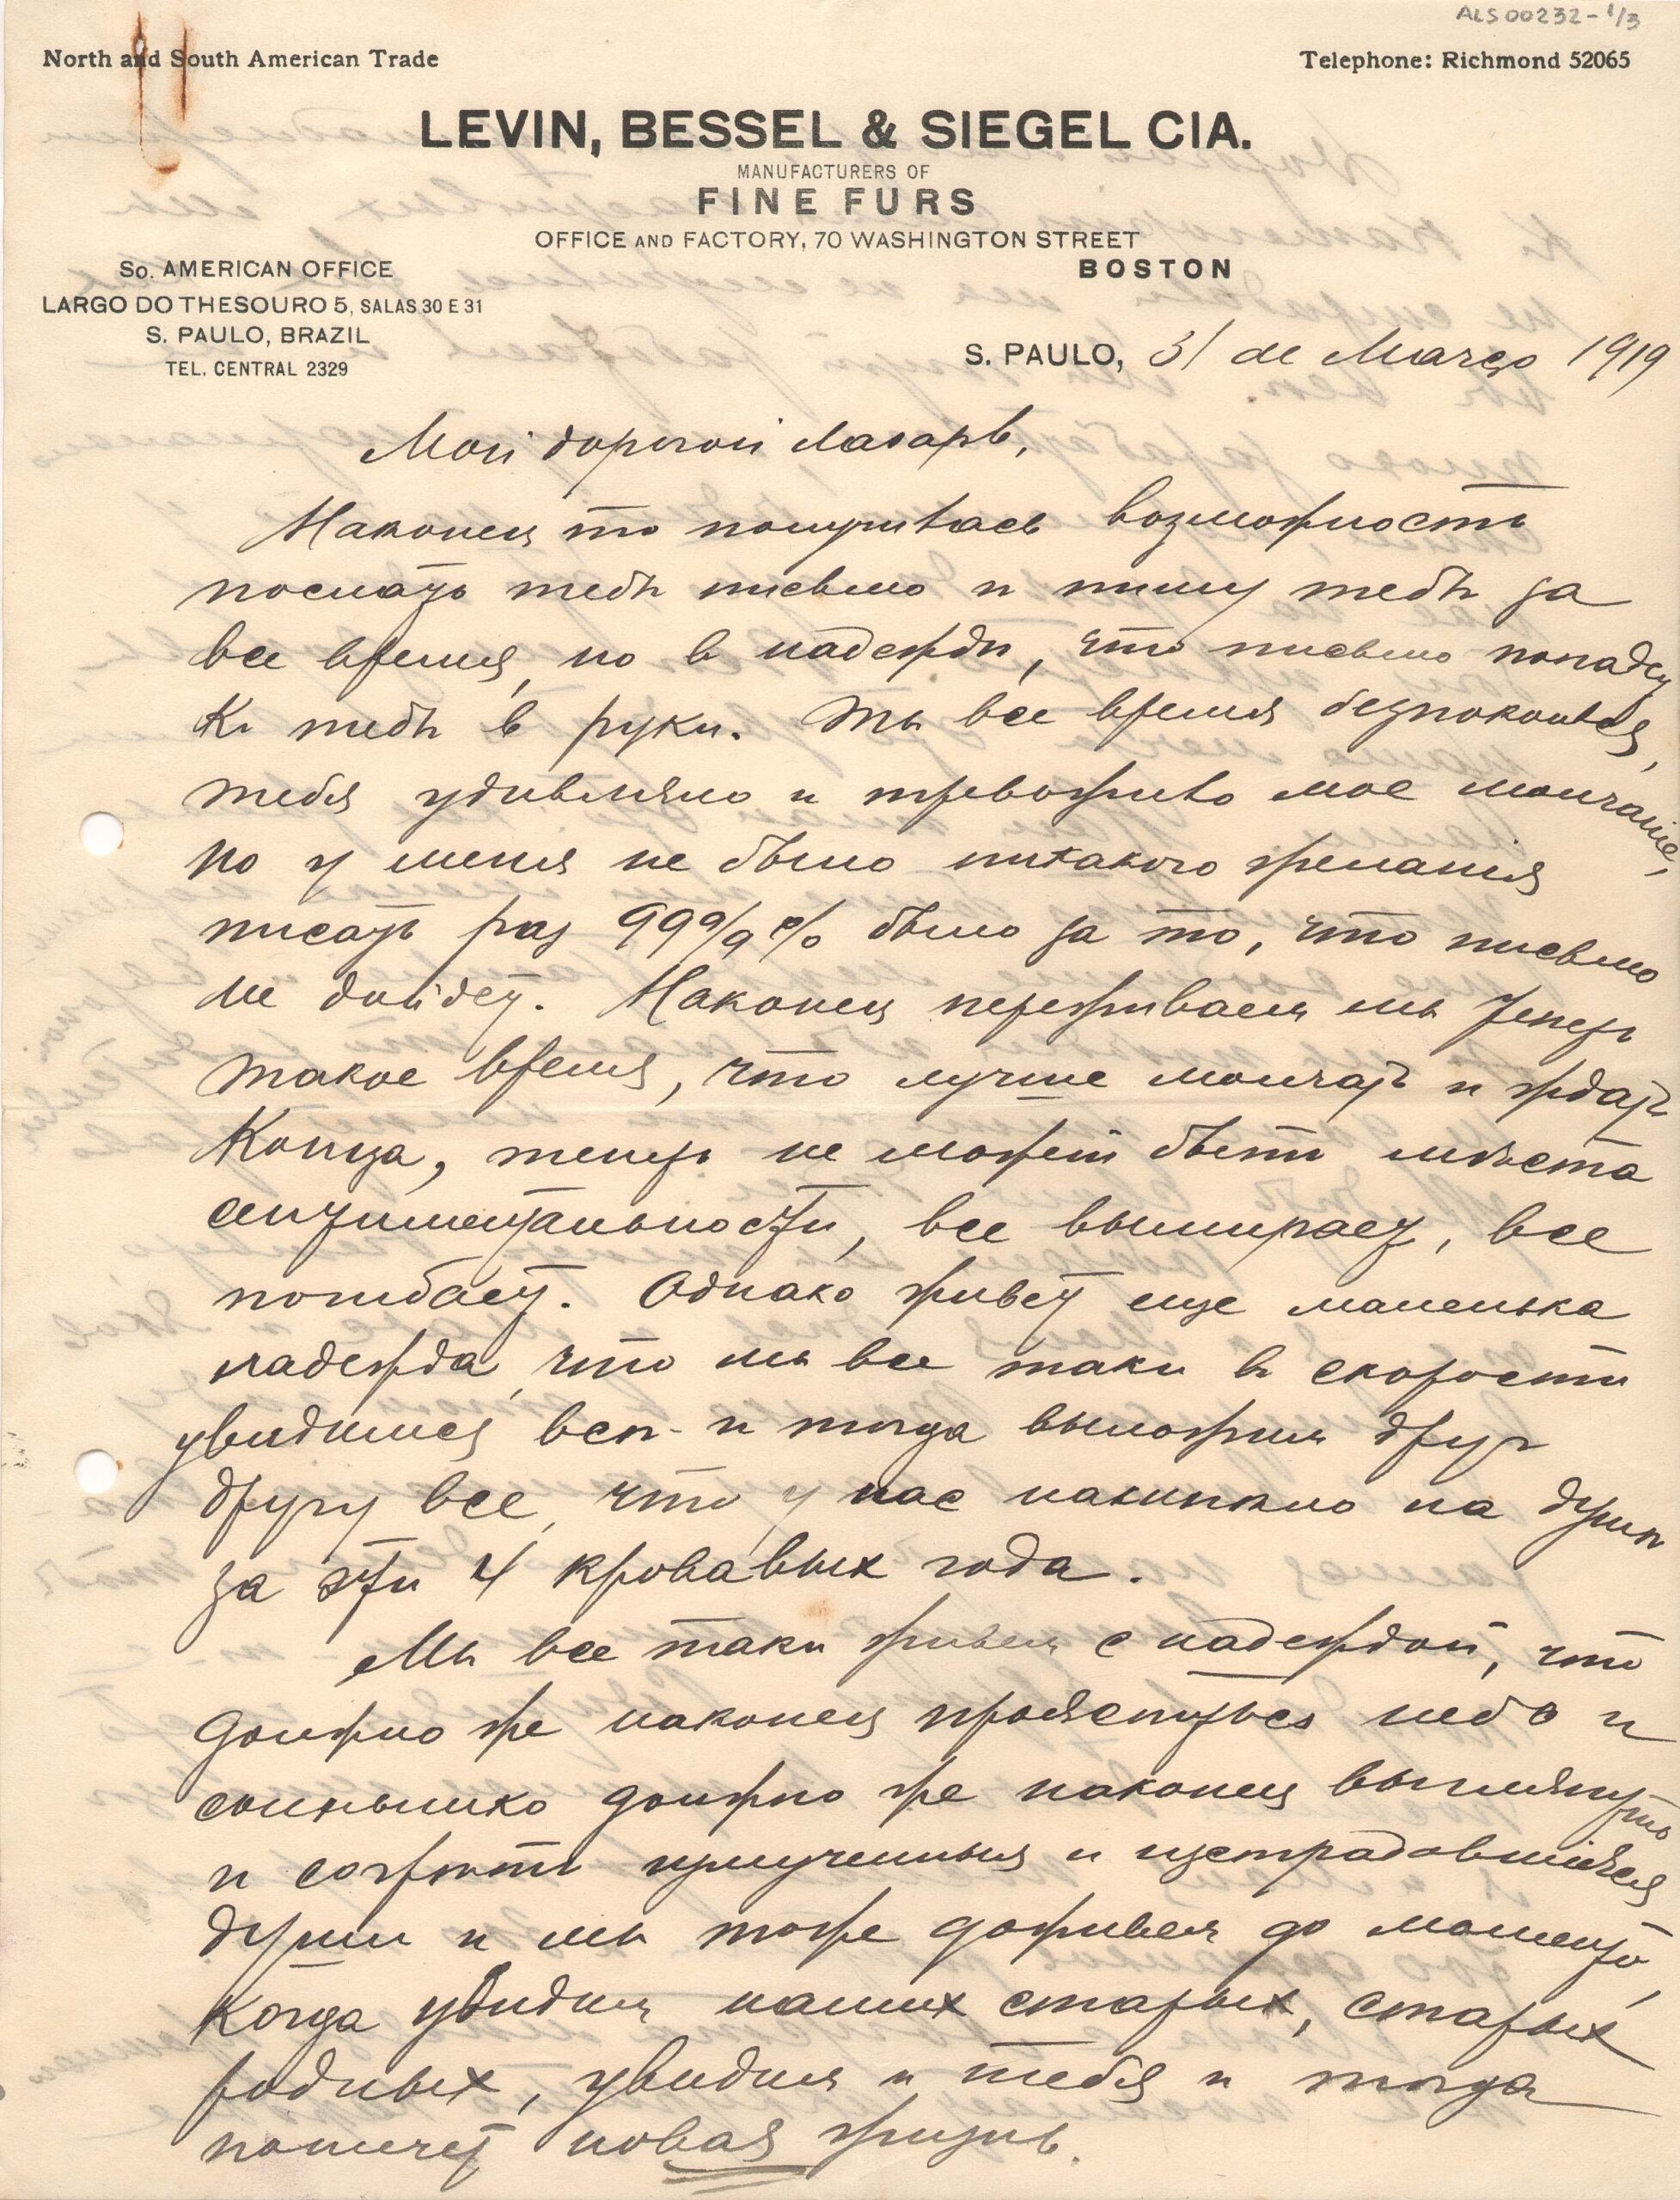 ALS 00232-1/3
North and South American Trade
Telephone: Richmond 52065
LEVIN, BESSEL & SIEGEL CIA.
MANUFACTURERS OF
FINE FURS
OFFICE AND FACTORY, 70 WASHINGTON STREET
BOSTON
So. AMERICAN OFFICE
LARGO DO THESOURO 5, SALAS 30 E 31
S. PAULO, BRAZIL
TEL. CENTRAL 2329
S. PAULO, 31 de Março 1919
Мой дорогой Лазарь,
Наконец то получилась возможность
послать тебѣ письмо и пишу тебѣ за
все время, но в надеждѣ, что письмо попаду
к тебѣ в руки. Ты все время безпокоился,
тебя удивляло и тревожило мое молчание,
но у меня не было никакого желания
писать раз 99 9/9 % было за то, что письмо
не дойдет. Наконец переживаем мы теперь
такое время, что лучше молчать и ждать
конца, теперь не может быть мѣста
сентиментальности, все вымирает, все
погибает. Однако живет еще маленька
надежда, что мы все таки в скорости
увидимся всѣ и тогда выложим друг
другу все, что у нас накипѣло на душѣ
за эти 4 кровавых года.
Мы все таки живем с надеждой, что
должно же наконец проясниться небо и
солнышко должно же наконец выглянуть
и согрѣть измученныя и изстрадавшіяся
души и мы тоже доживем до момента,
когда увидим наших старых, старых
родных, увидим и тебя и тогда
начнет новая жизнь.